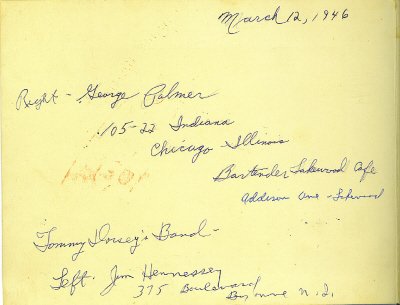 March 12, 1946
Right - George Palmer
105-22 Indiana
Chicago - Illinois
Bartender Lakewood Cafe
Addison Ave - Lakewood
Tommy Dorsey's Band -
Left. Jim Hennessey
375 Boulevard
Bayonne N.J.